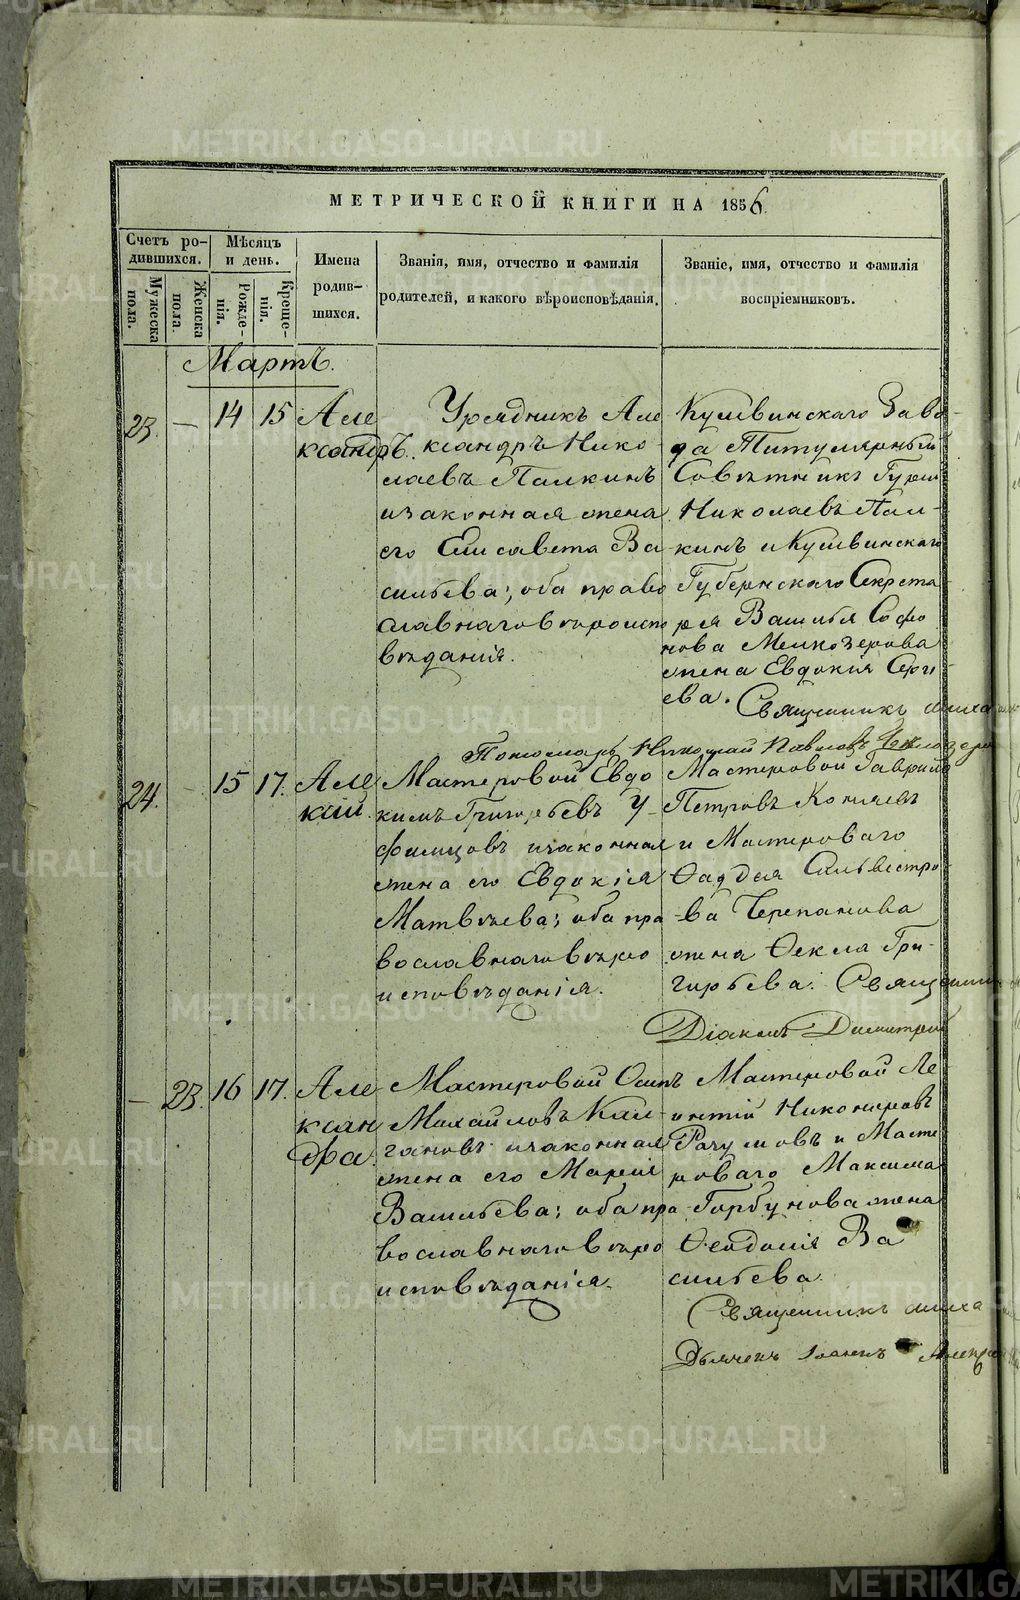 МЕТРИЧЕСКОЙ КНИГИ НА 1856
Счетъ ро-
дившихся.
Мѣсяцъ
и день.
Имена
родив-
шихся.
Званія, имя, отчество и фамилія
родителей, и какого вѣроисповѣданія.
Званіе, имя, отчество и фамилія
воспріемниковъ.
Мужеска
пола.
Женска
пола.
Рожде-
нія.
Креще-
нія.
Мартъ.
23. — 14 15
Але
ксандръ.
Урядникъ Але
ксандръ Нико-
лаевъ Палкинъ
и законная жена
его Елисавета Ва
сильева; оба право
славнаго вѣроиспо
вѣданія.
Кушвинскаго Заво-
да Титулярный
Совѣтникъ
Николаевъ Пал-
кинъ и Кушвинскаго
Губернскаго Секрета
ря Василья Софо
нова Мелкозерова
жена Евдокія Серги
ева.
Священникъ Миха
Пономарь Николай Павловъ
24. — 15 17.
Але
ксій.
Мастеровой Евдо
кимъ Григорьевъ У-
фимцовъ и законная
жена его Евдокія
Матвѣева; оба пра
вославнаго вѣро
исповѣданія.
Мастеровой Гаврило
Петровъ Копяевъ
и Мастероваго
Ѳаддея Сильвестро
ва Черепанова
жена Ѳекла Гри-
горьева.
Священник
Діаконъ Димитрій
— 23. 16 17.
Але
ксан
дра.
Мастеровой Осипъ
Михайловъ Кал-
гановъ и законная
жена его Марія
Васильева; оба пра
вославнаго вѣро
исповѣданія.
Мастеровой Ле-
онтій Никоноровъ
Разумовъ и Масте
роваго Максима
Горбунова жена
Ѳеодосія Ва
сильева.
Священникъ Миха
Дьячекъ Іоаннъ Алекса
METRIKI.GASO-URAL.RU